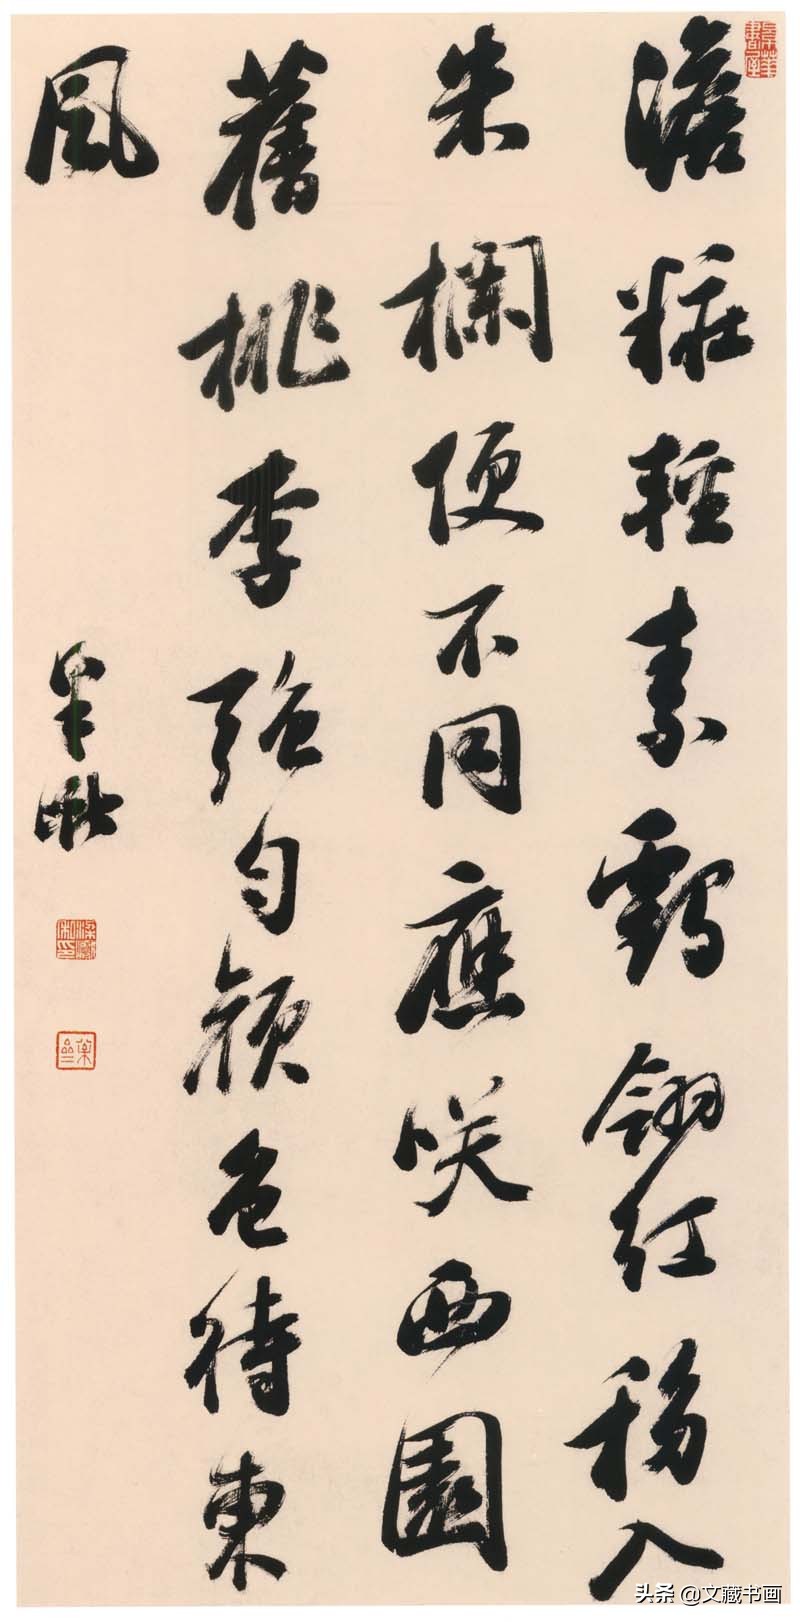 澹粧輕素鶴翎紅移入
朱欄便不同應咲西園
舊桃李強勻顏色待東
風
头条 @文藏书画